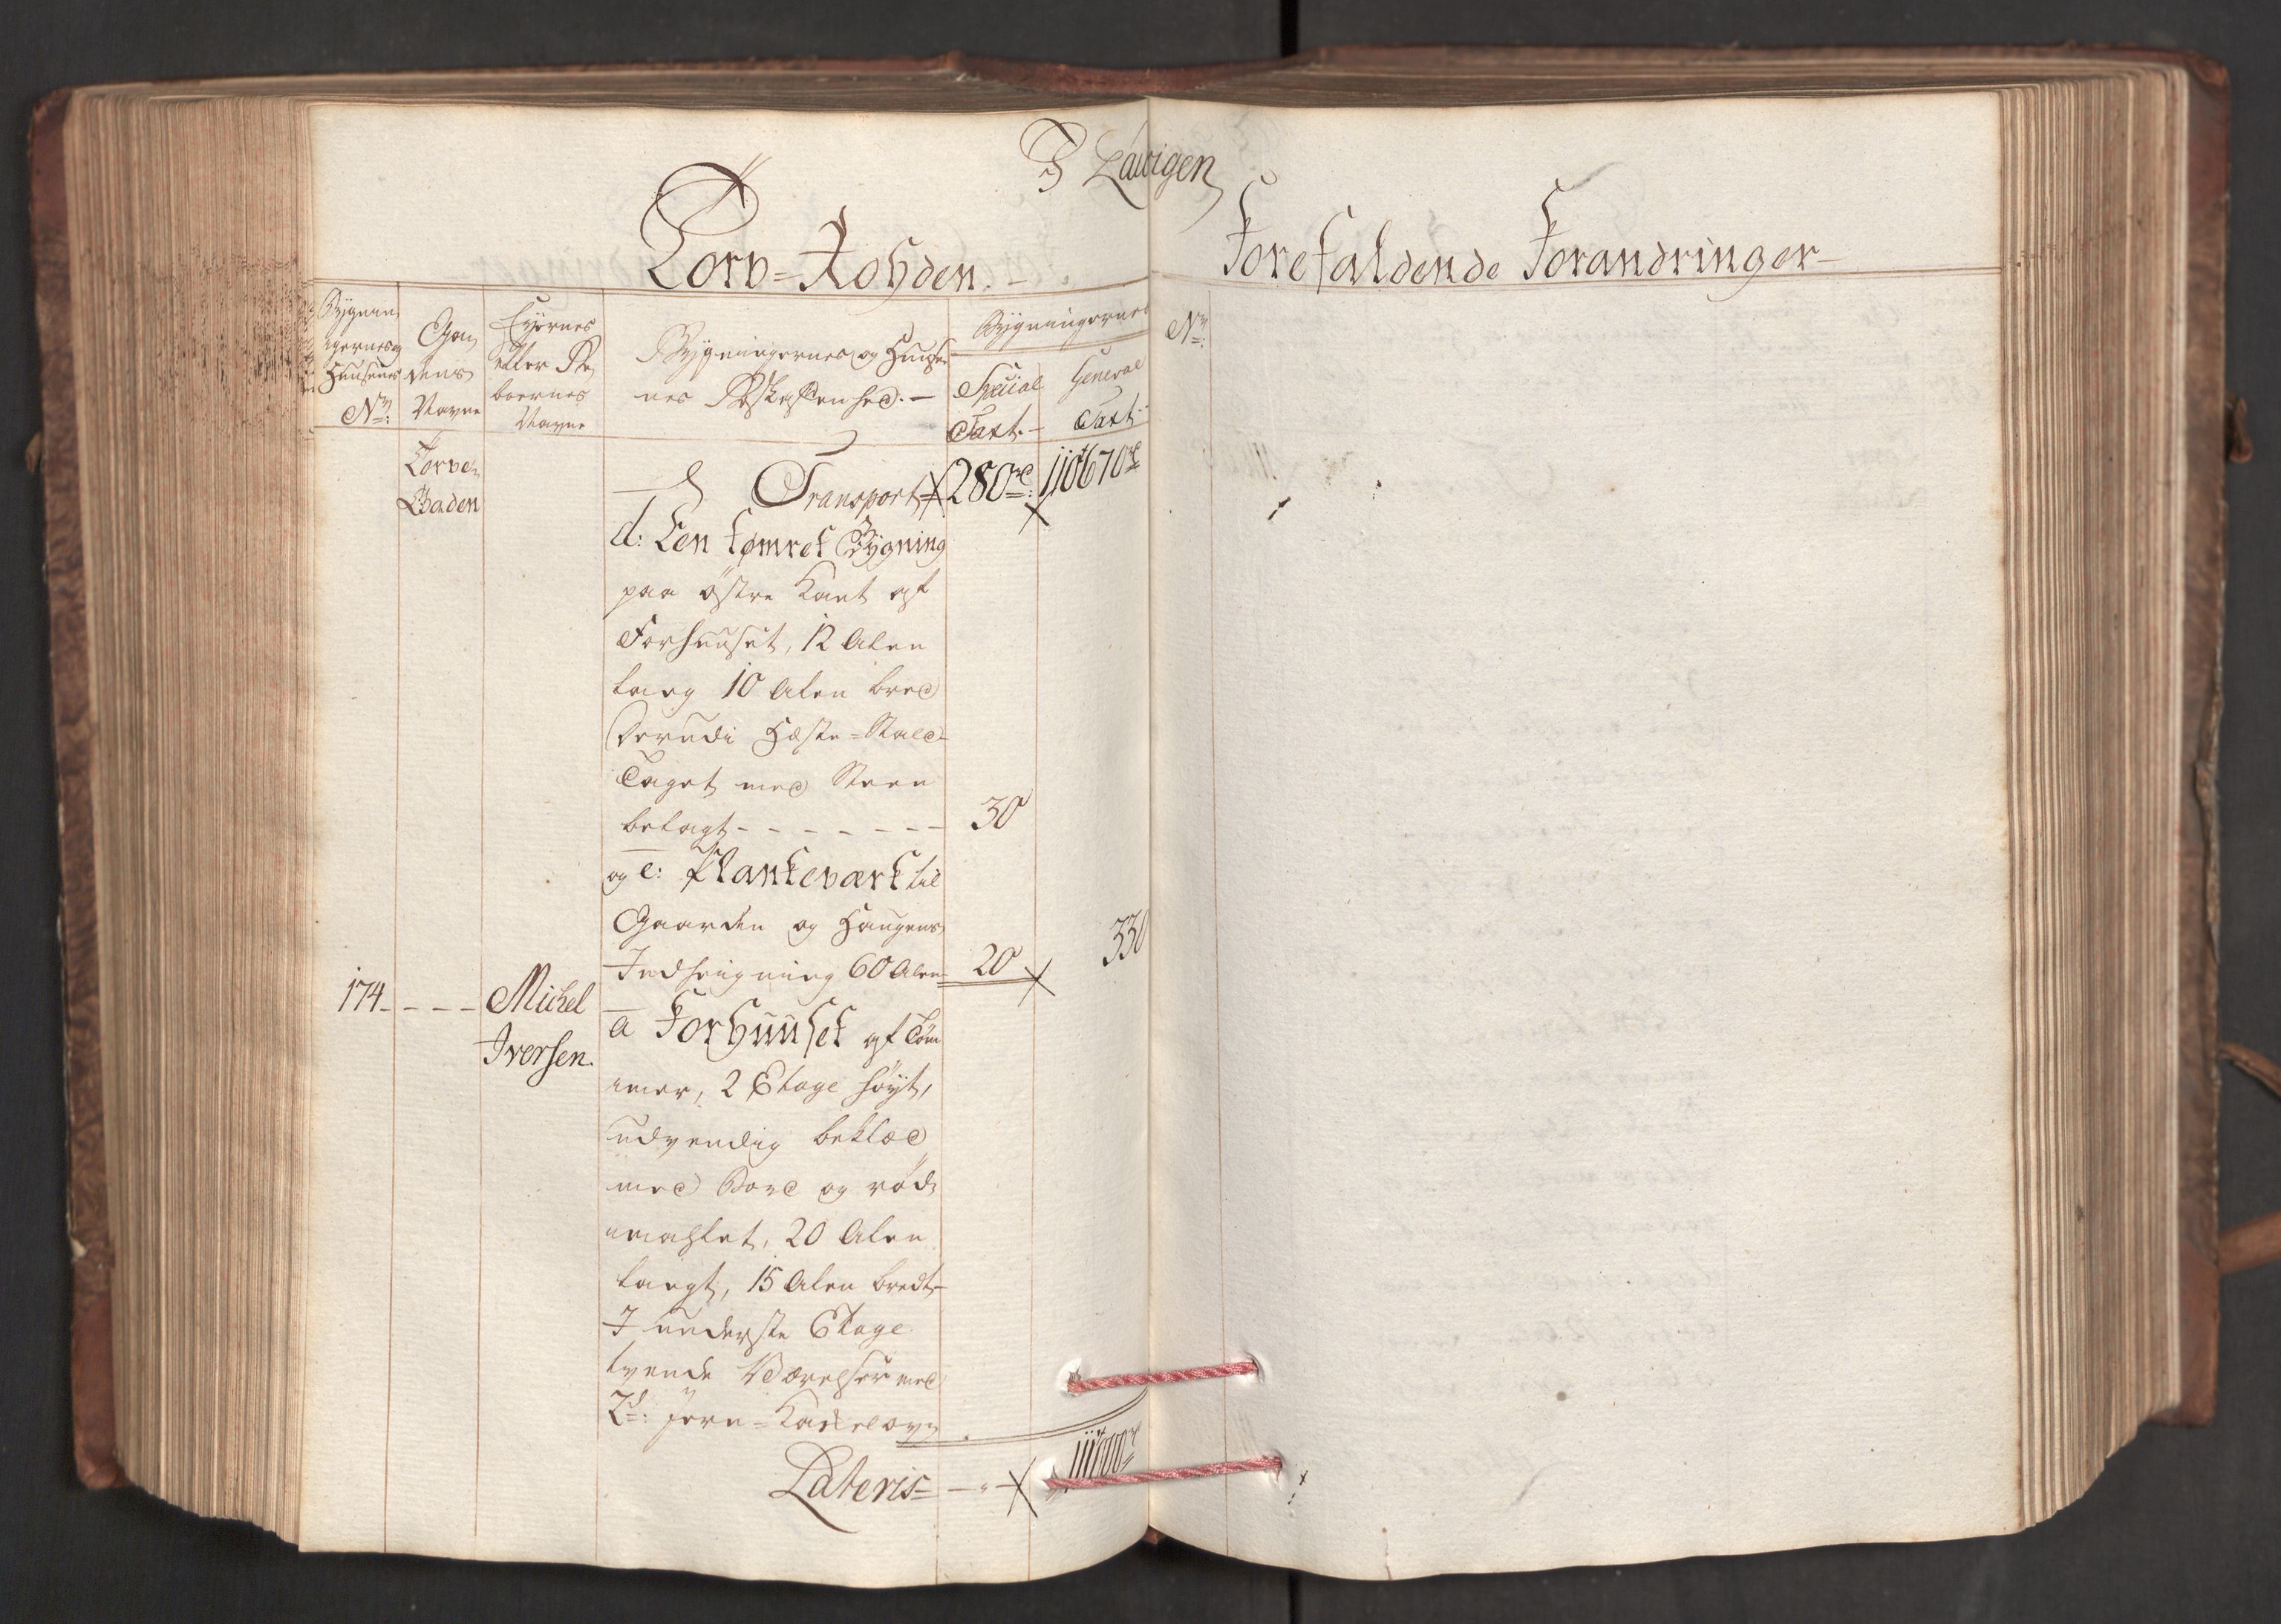 I Laurvigen
Torv-Rohden.
Forefaldende Forandringer
Bygnin
gernes og
Huusenes
No:
Ga
dens
Navne
Eyernes
eller Be
boernes
Navne
Bygningernes og Huuse
nes Beskaffenhed.
Bygningernes
Special
Taxt.
General
Taxt
No:
Torve
Gaden
Transport 280 rd: 110670 rd
d: Een tømret Bygning
paa östre Kant af
Forhuuset, 12 Alen
lang 10 Alen bred
Derudi Heste-Stald
Taget med Steen
belagt - - - - - - - 30
og e: Plankeværk til
Gaarden og Haugens
Indhegning 60 Alen 20 330
174 - - - - Michel
Iversen.
a Forhuuset af Tøm
mer, 2 Etage höyt,
udvendig beklæd
med Bord og röd
mahlet, 20 Alen
langt, 15 Alen bredt
I underste Etage
tvende Værelser med
2de: Jern-Kakelovn
Lateris - - 111000 rd